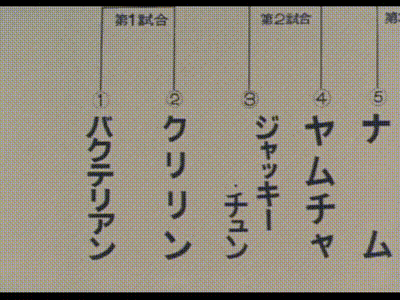 第1試合
第2試合
第
① バクテリアン
② クリリン
③ ジャッキー
・チュン
④ ヤムチャ
⑤ ナム